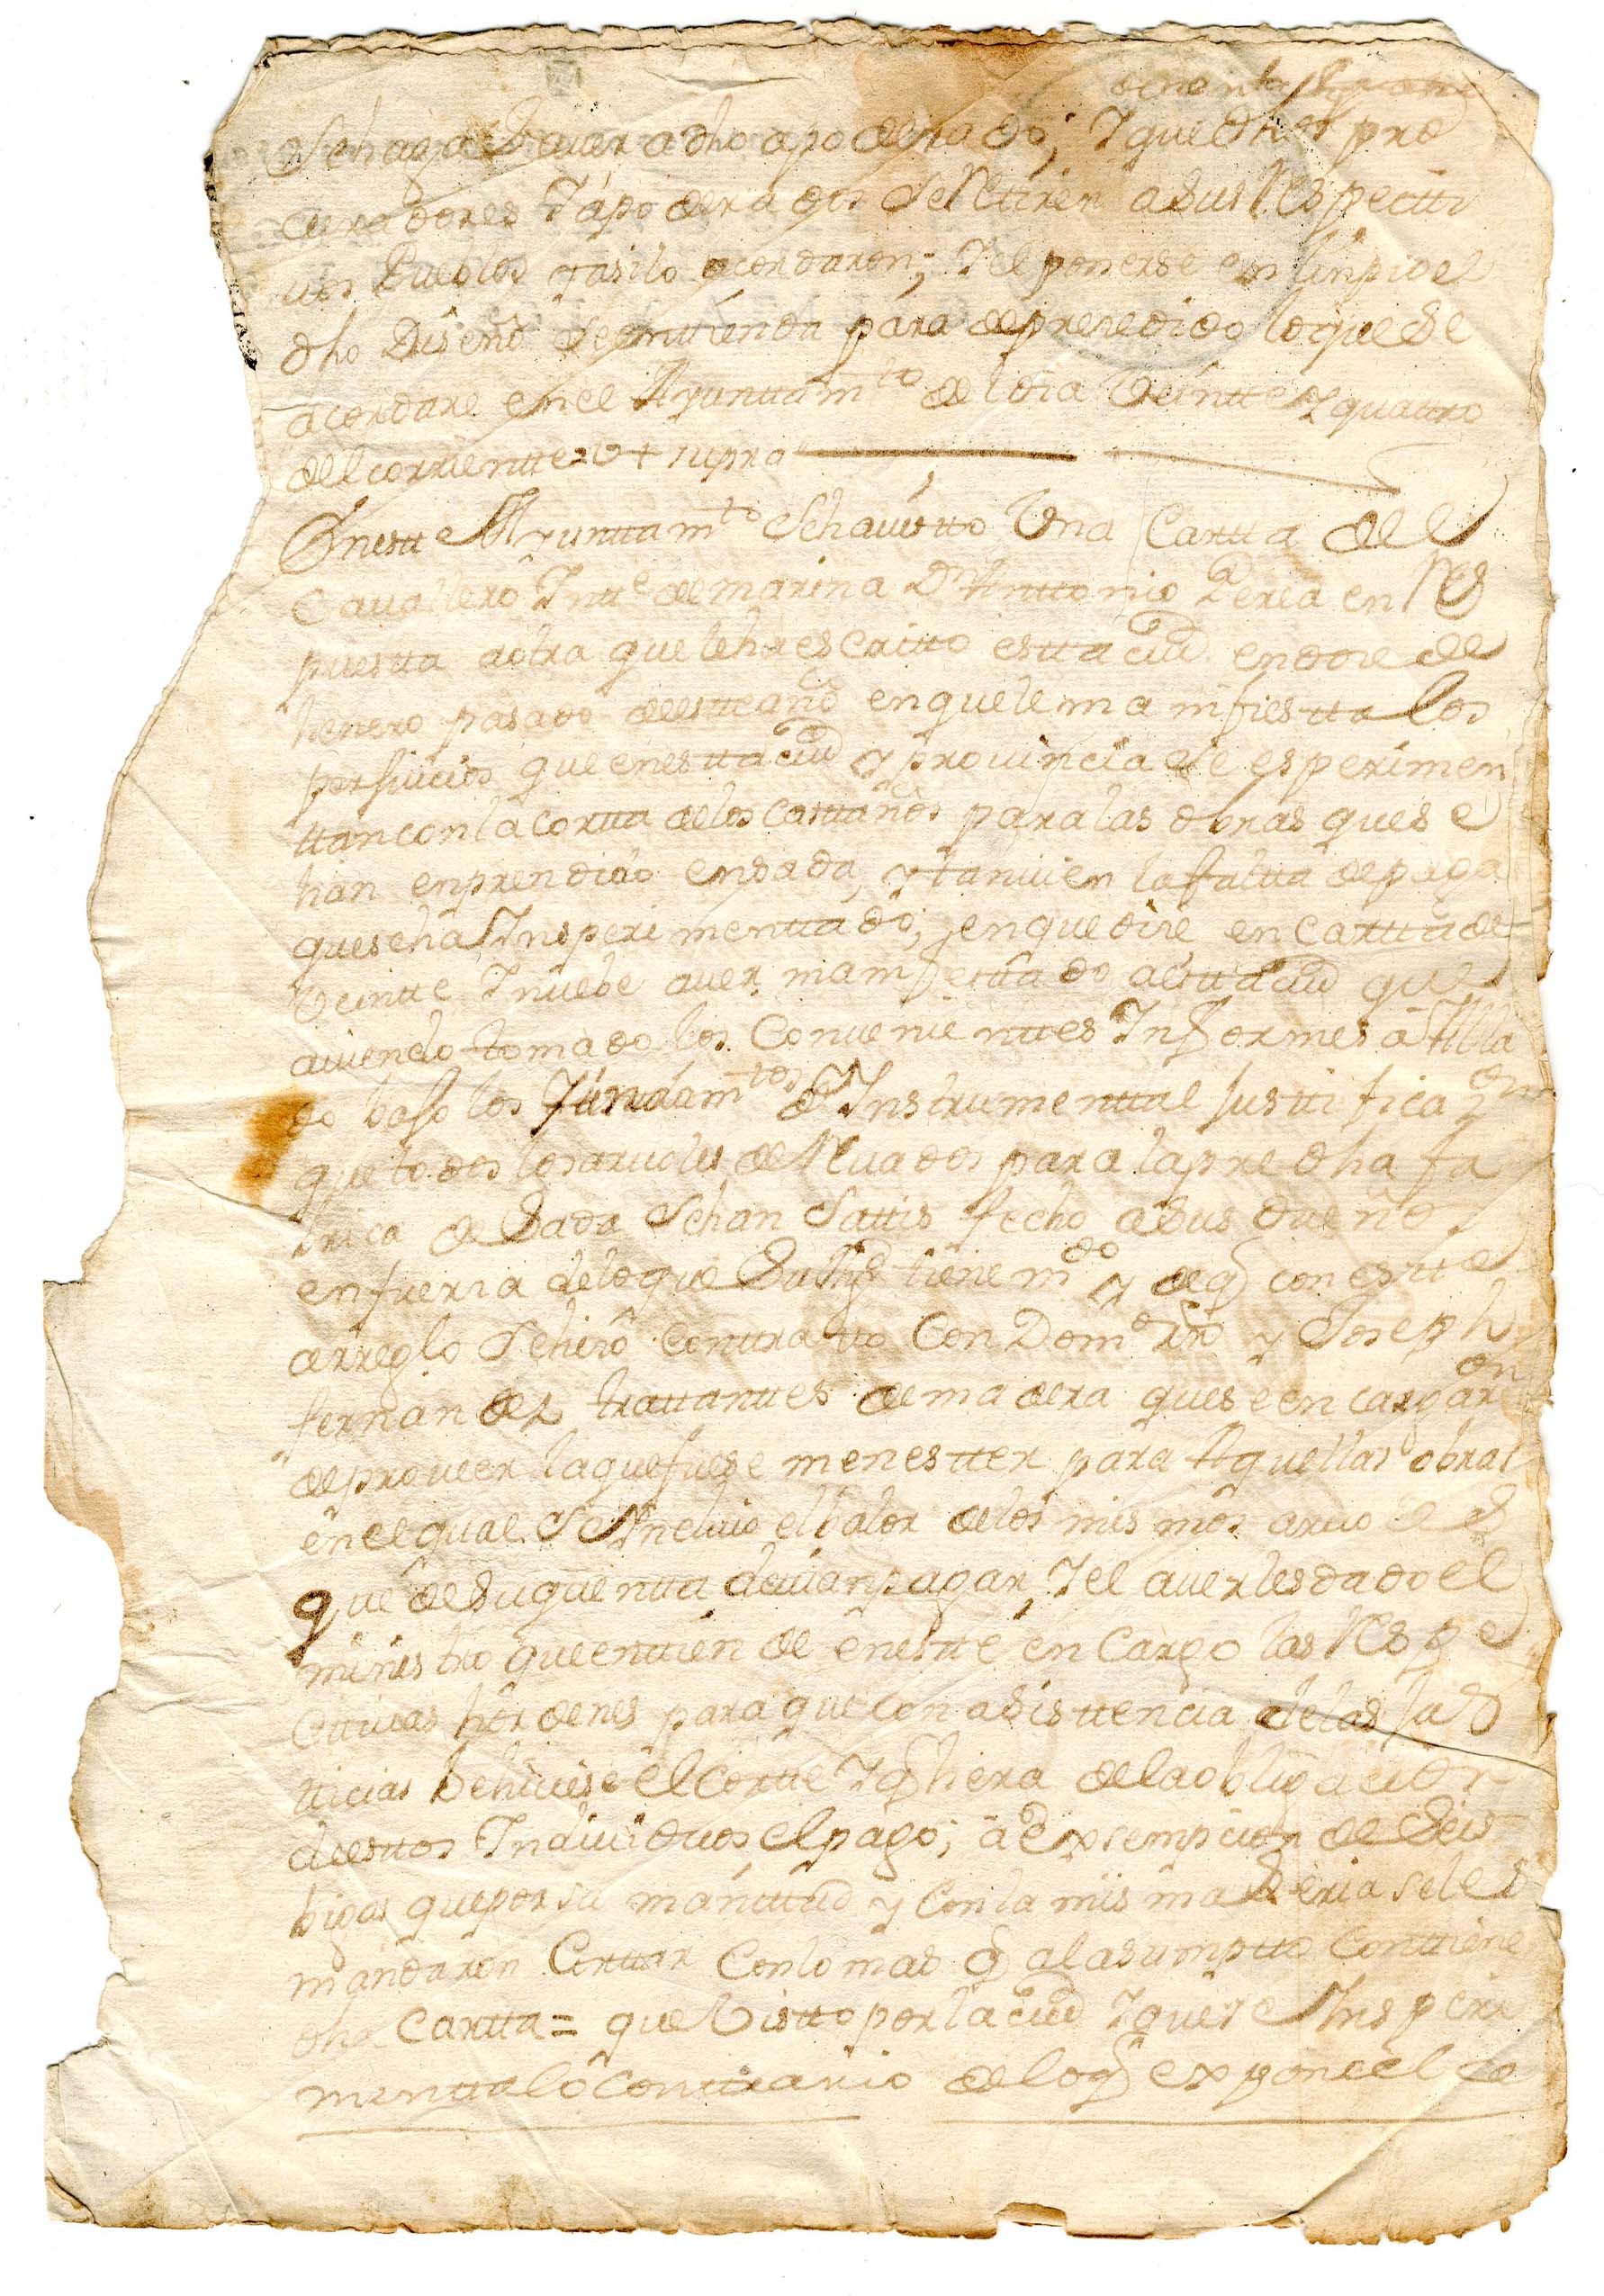 Se haga saver a dho apoderado; Y que dhos pro
curadores Y apoderados se Retiren a sus Respectti
vos Pueblos y asi lo acordaron; Y el ponerse en linpio el
dho Diseño se emttienda para de preredido lo que se
acordare en el Ayunttamto de el dia Veintte y quattro
del corrientte = Ut supra
En estte Ayunttamto Se ha vistto Una Cartta de el
Cavallero Intte de marina Dn Anttonio Perea en Res
puestta a otra que le ha escritto estta ciud en dore de
henero pasado de estte año en que le manifiestta los
perjuicios que en estta ciud y provincia se esperimen
ttan con la cortta de los casttaños para las obras que se
han enprendido en Sada, y tanvien la faltta de paga
que se ha Insperimenttado; en que dire en Cartta de
Veintte Y nuebe aver manifesttado a estta ciud que
aviendo tomado los Convenienttes Informes a Alla
do bajo los fundamtos de Instrumenttal Justtificazon
que todos los arvoles de Rivados para la pre dha fa
brica de Sada Se han Sattisfecho a sus dueños
en fuerza de lo que Su Magd tiene mdo y de q con estte
arreglo Se hizo Conttratto Con Domo Rno y Joseph
fernandez trattanttes de madera que se encargaron
de proveer la que fuese menestter para Aquellas obras
en el qual Se Incluio el balor de los mismos arvoles
que de su quentta devian pagar, Y el averles dado el
ministro que entiende en estte encargo las Respe
ctivas hordenes para que con asisttencia de las Jus
tticias Se hiciese el Cortte Y q hera de la obligacion
de esttos Individuos el pago; a Exsempcion de Seis
bigas que por su magnittud y Con la misma Seria se les
mandaron Corttar Con lo mas q al asumptto Conttiene
dha Cartta = que Vistto por la ciud Y que se Insperi
mentta lo Conttrario de lo q expone el ca